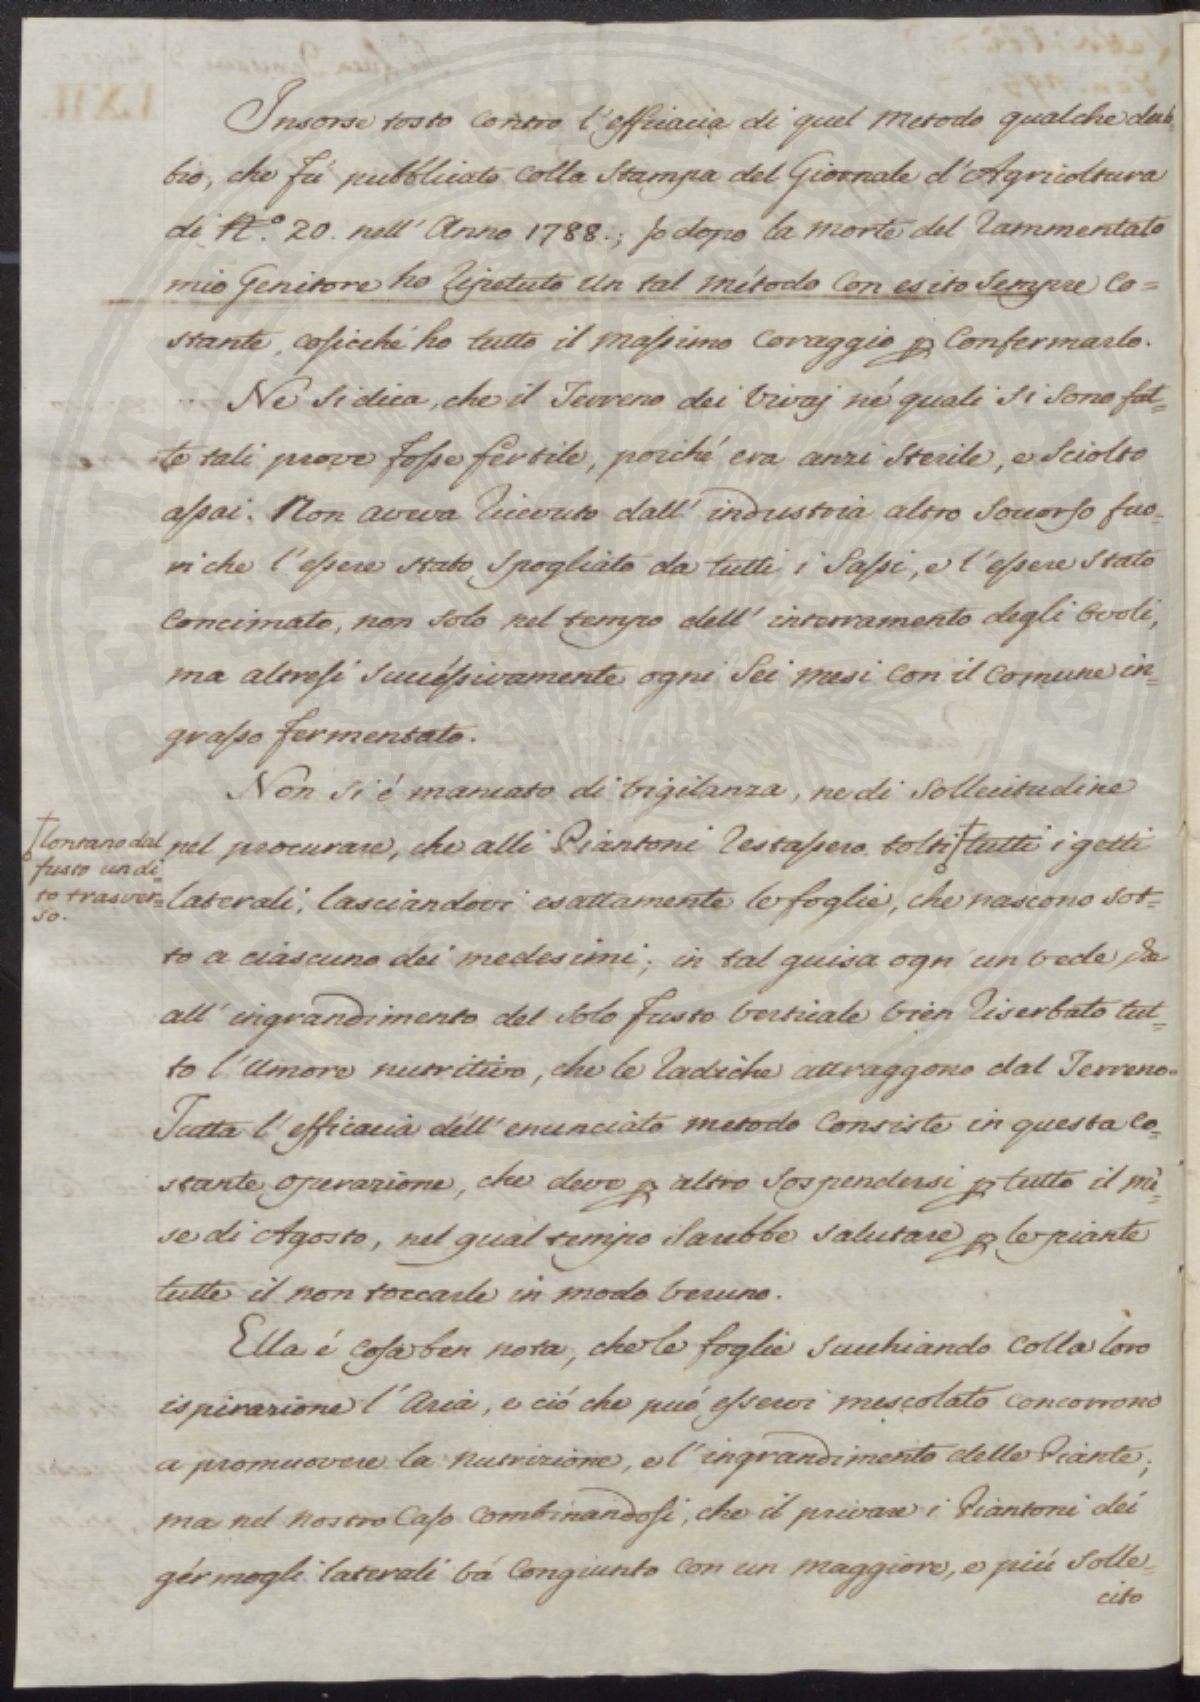 Insorse tosto contro l'efficacia di quel metodo qualche dub-
bio, che fú pubblicato colla Stampa del Giornale d'Agricoltura
di N.º 20. nell' Anno 1788.; Io dopo la morte del Rammentato
mio Genitore ho Ripetuto un tal método con esito sempre Co=
stante, cosicché ho tutto il massimo coraggio p Confermarlo.
Ne si dica, che il Terreno dei Vivaj né quali si sono fat=
te tali prove fosse fertile, poiché era anzi sterile, e sciolto
assai. Non aveva Ricevuto dall' industria altro soccorso fuo=
ri che l'essere stato Spogliato da tutti i Sassi, e l'essere stato
Concimato, non solo nel tempo dell' interramento degli Ovoli,
ma altresí successivamente ogni Sei mesi con il Comune in=
grasso fermentato.
Non si é mancato di Vigilanza, ne di Sollecitudine
nel procurare, che alli Piantoni Restassero tolti tutti i getti
lontano dal
fusto un di=
to trasver=
so.
laterali, lasciandovi esattamente le foglie, che nascono sot=
to a ciascuno dei medesimi; in tal guisa ogn' un vede,
all' ingrandimento del Solo fusto Verticale Vien Riserbato tut=
to l'Umore nutritivo, che le Radiche attraggono dal Terreno.
Tutta l'efficacia dell' enunciato metodo Consiste in questa Co=
stante Operazione, che deve p altro sospendersi p tutto il me=
se di Agosto, nel qual tempo sarebbe salutare p le piante
tutte il non toccarle in modo Veruno.
Ella é cosa ben nota, che le foglie succhiando colla loro
ispirazione l'Aria, e ció che puó esservi mescolato concorrono
a promuovere la nutrizione, e l'ingrandimento delle Piante;
ma nel nostro Caso combinandosi, che il privare i Piantoni dei
gérmogli laterali Vá Congiunto con un maggiore, e piú Solle=
cito